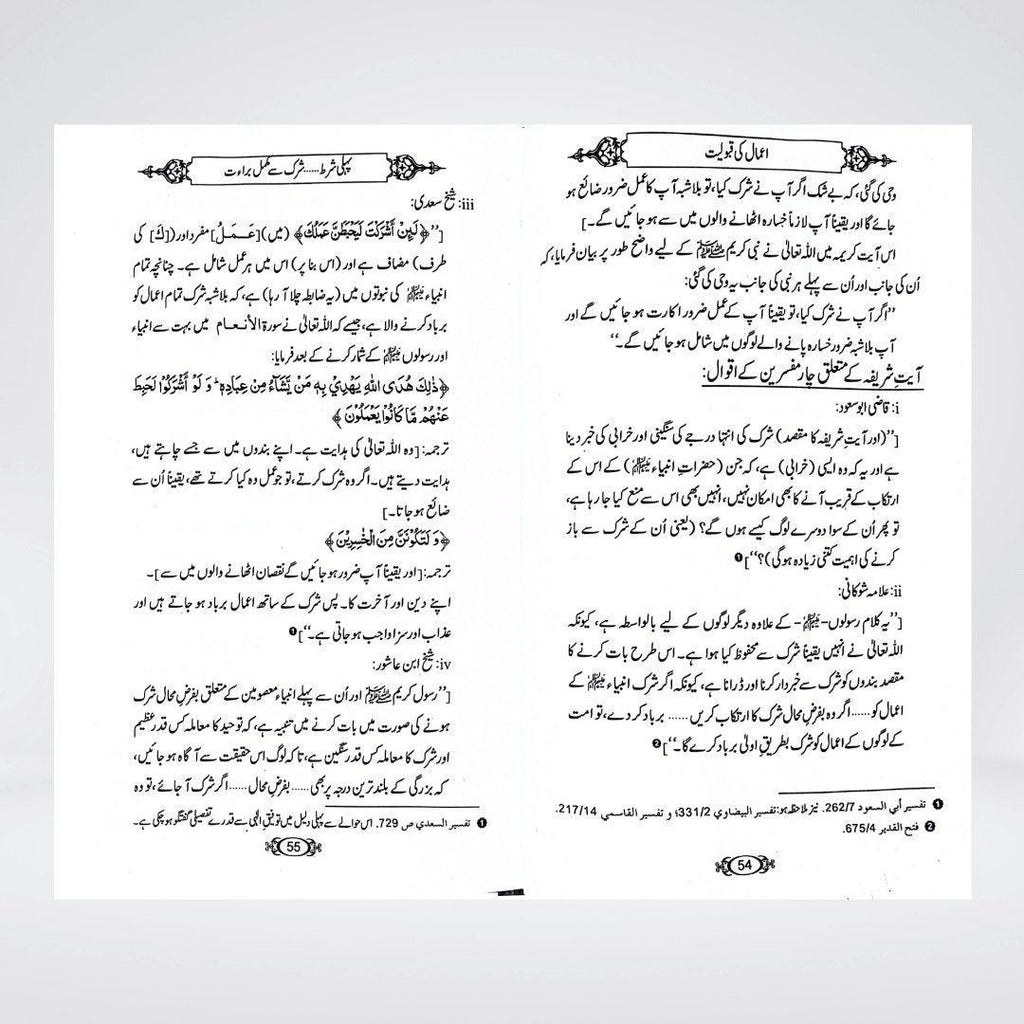 اعمال کی قبولیت
وحی کی گئی، کہ بے شک اگر آپ نے شرک کیا، تو بلاشبہ آپ کا عمل ضرور ضائع ہو
جائے گا اور یقیناً آپ لازماً خسارہ اٹھانے والوں میں سے ہو جائیں گے۔]
اس آیت کریمہ میں اللہ تعالیٰ نے نبی کریم ﷺ کے لیے واضح طور پر بیان فرمایا، کہ
اُن کی جانب اور اُن سے پہلے ہر نبی کی جانب یہ وحی کی گئی:
”اگر آپ نے شرک کیا، تو یقیناً آپ کے عمل ضرور اکارت ہو جائیں گے اور
آپ بلاشبہ ضرور خسارہ پانے والے لوگوں میں شامل ہو جائیں گے۔“
آیتِ شریفہ کے متعلق چار مفسرین کے اقوال:
i: قاضی ابوسعود:
[”(اور آیتِ شریفہ کا مقصد) شرک کی انتہا درجے کی سنگینی اور خرابی کی خبر دینا
ہے اور یہ کہ وہ ایسی (خرابی) ہے، کہ جن (حضراتِ انبیاء علیہم السلام) کے اس کے
ارتکاب کے قریب آنے کا بھی امکان نہیں، انہیں بھی اس سے منع کیا جا رہا ہے،
تو پھر اُن کے سوا دوسرے لوگ کیسے ہوں گے؟ (یعنی اُن کے شرک سے باز
کرنے کی اہمیت کتنی زیادہ ہوگی)؟“] ❶
ii: علامہ شوکانی:
[”یہ کلام رسولوں-علیہم السلام- کے علاوہ دیگر لوگوں کے لیے بالواسطہ ہے، کیونکہ
اللہ تعالیٰ نے انہیں یقیناً شرک سے محفوظ کیا ہوا ہے۔ اس طرح بات کرنے کا
مقصد بندوں کو شرک سے خبردار کرنا اور ڈرانا ہے، کیونکہ اگر شرک انبیاء علیہم السلام کے
اعمال کو...... اگر وہ بفرضِ محال شرک کا ارتکاب کریں...... برباد کر دے، تو امت
کے لوگوں کے اعمال کو شرک بطریقِ اولیٰ برباد کرے گا۔“] ❷
❶ تفسیر أبي السعود 262/7. نیز ملاحظہ ہو: تفسیر البیضاوي 331/2؛ و تفسیر القاسمي 217/14.
❷ فتح القدیر 675/4.
54
پہلی شرط......شرک سے مکمل براءت
iii: شیخ سعدی:
[”﴿لَئِنْ أَشْرَكْتَ لَيَحْبَطَنَّ عَمَلُكَ﴾ (میں) [عَـمَـلُ] مفرد اور ([كَ] کی
طرف) مضاف ہے اور (اس بنا پر) اس میں ہر عمل شامل ہے۔ چنانچہ تمام
انبیاء علیہم السلام کی نبوتوں میں (یہ ضابطہ چلا آ رہا) ہے، کہ بلاشبہ شرک تمام اعمال کو
برباد کرنے والا ہے، جیسے کہ اللہ تعالیٰ نے سورة الأنـعـام میں بہت سے انبیاء
اور رسولوں علیہم السلام کے شمار کرنے کے بعد فرمایا:
﴿ذٰلِكَ هُدَى اللهِ يَهْدِيْ بِهٖ مَنْ يَّشَآءُ مِنْ عِبَادِهٖ ؕ وَ لَوْ أَشْرَكُوْا لَحَبِطَ
عَنْهُمْ مَّا كَانُوْا يَعْمَلُوْنَ﴾
ترجمہ: [وہ اللہ تعالیٰ کی ہدایت ہے۔ اپنے بندوں میں سے جسے چاہتے ہیں،
ہدایت دیتے ہیں۔ اگر وہ شرک کرتے، تو جو عمل وہ کیا کرتے تھے، یقیناً اُن سے
ضائع ہو جاتا۔]
﴿وَ لَتَكُوْنَنَّ مِنَ الْخٰسِرِيْنَ﴾
ترجمہ: [اور یقیناً آپ ضرور ہو جائیں گے نقصان اٹھانے والوں میں سے]۔
اپنے دین اور آخرت کا۔ پس شرک کے ساتھ اعمال برباد ہو جاتے ہیں اور
عذاب اور سزا واجب ہو جاتی ہے۔“] ❶
iv: شیخ ابن عاشور:
[”رسول کریم ﷺ اور اُن سے پہلے انبیاء معصومین کے متعلق بفرضِ محال شرک
ہونے کی صورت میں بات کرنے میں تنبیہ ہے، کہ توحید کا معاملہ کس قدر عظیم
اور شرک کا معاملہ کس قدر سنگین ہے، تاکہ لوگ اس حقیقت سے آگاہ ہو جائیں،
کہ بزرگی کے بلند ترین درجہ پر بھی...... بفرضِ محال...... اگر شرک آ جائے، تو وہ
❶ تفسیر السعدي ص 729. اس حوالے سے پہلی دلیل میں توفیقِ الٰہی سے قدرے تفصیلی گفتگو ہو چکی ہے۔
55